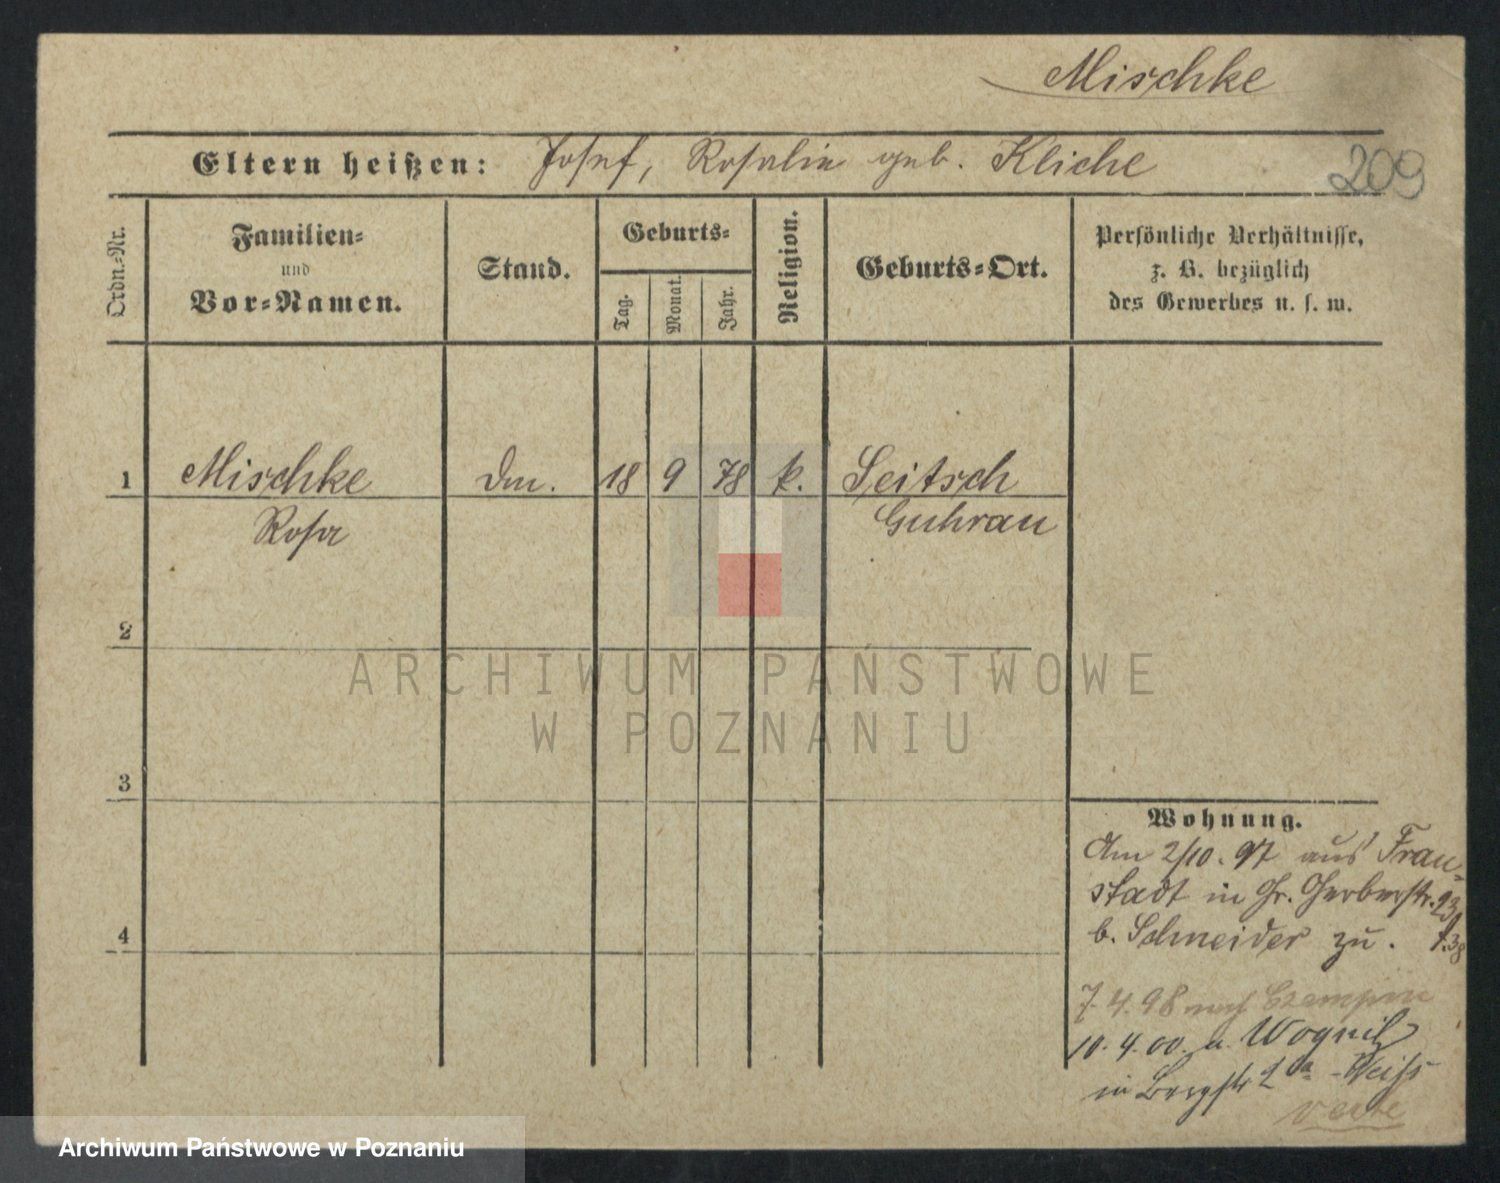 Mischke
Eltern heißen: Josef, Rosalie geb. Kliche
209
Ordn.-Nr.
Familien-
und
Vor-Namen.
Stand.
Geburts-
Tag.
Monat.
Jahr.
Religion.
Geburts-Ort.
Persönliche Verhältnisse,
z. B. bezüglich
des Gewerbes u. s. w.
1 Mischke Dm. 18 9 78 k. Seitsch
Rosa Guhrau
2
3
4
Wohnung.
Am 2/10. 97 aus Frau-
stadt in Gr. Gerberstr. 23
b. Schneider zu.
7.4.98 nach Czempin
10.4.00. a.
in Bergstr 2a - Weiss
verte
ARCHIWUM PAŃSTWOWE
W POZNANIU
Archiwum Państwowe w Poznaniu